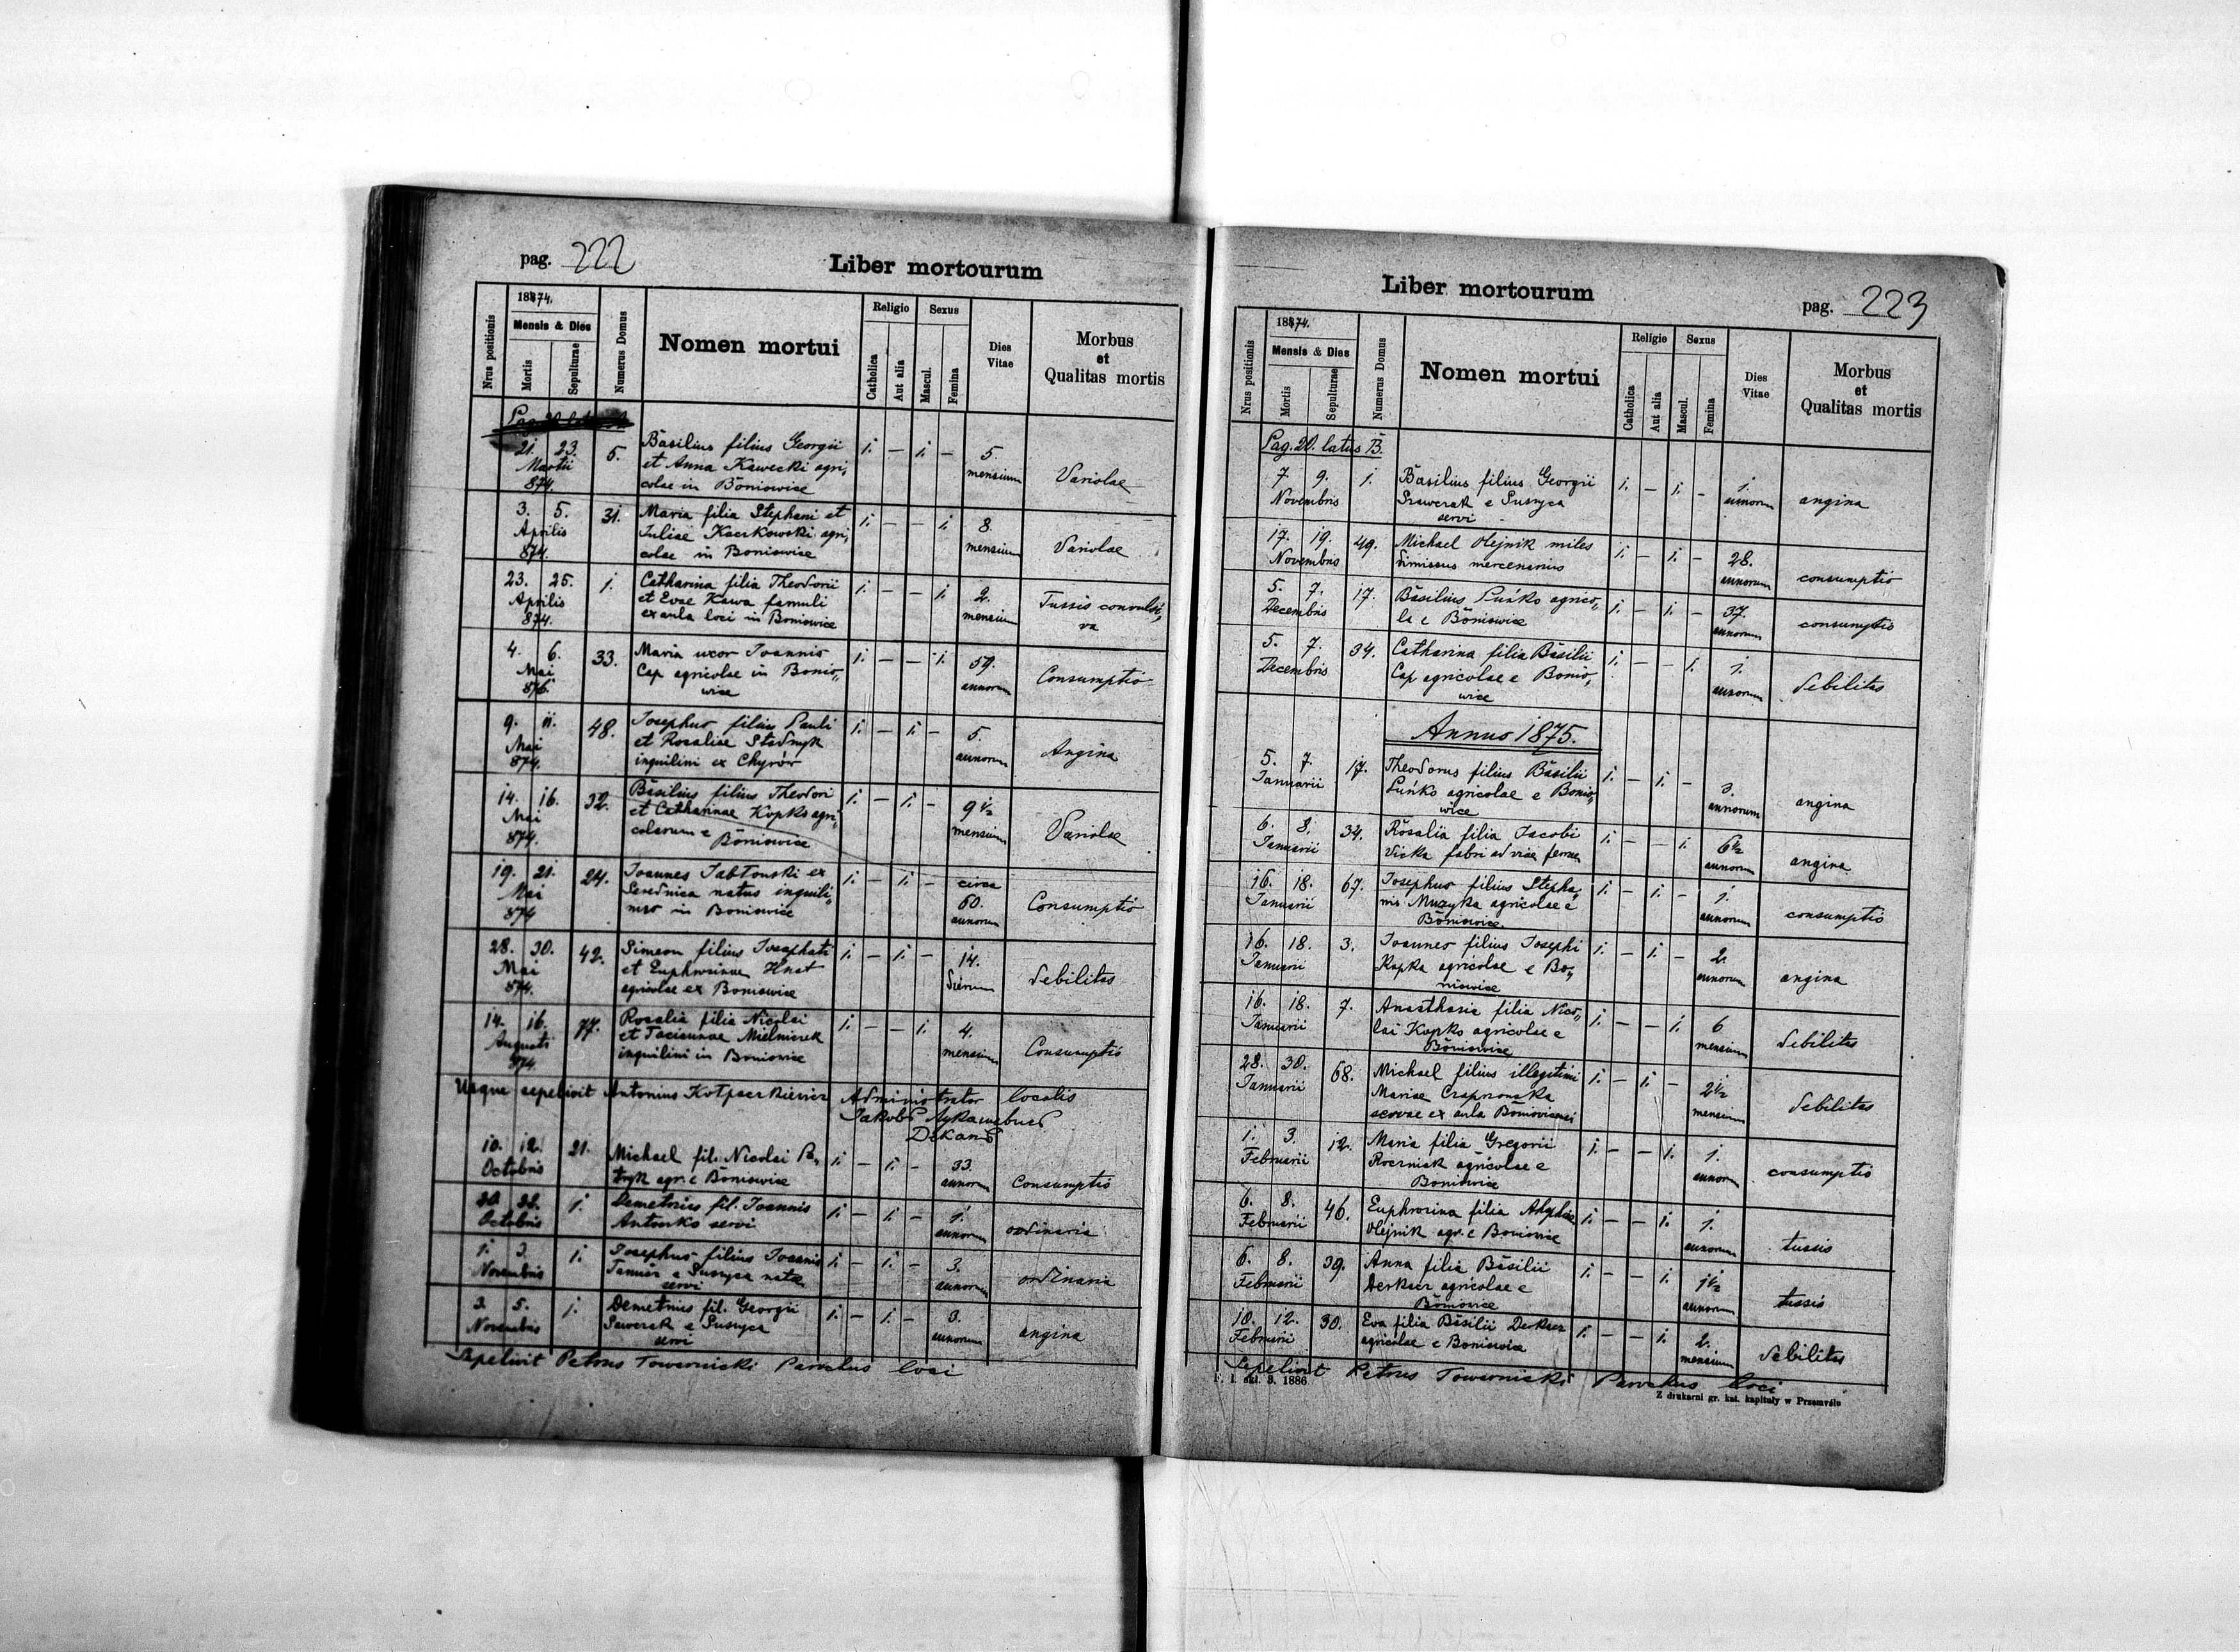 pag. 222
Liber mortourum
Nrus positionis
1874.
Mensis & Dies
Mortis
Sepulturae
Numerus Domus
Nomen mortui
Religio
Catholica
Aut alia
Sexus
Mascul.
Femina
Dies Vitae
Morbus et Qualitas mortis
21. 23. 5. Basilius filius Georgii 1. — 1. — 5.
Martii et Anna Kawecki agri, mensium Variolae
874. colae in Boniowice
3. 5. 31. Maria filia Stephani et 1. — — 1. 8.
Aprilis Juliae Kaczkowski agri, mensium Variolae
874. colae in Boniowice
23. 25. 1. Catharina filia Theodorii 1. — — 1. 2. Tussis convulsi,
Aprilis et Evae Kawa famuli mensium va
874. ex aula loci in Boniowice
4. 6. 33. Maria uxor Joannis 1. — — 1. 59.
Mai Cap agricolae in Bonio, annorum Consumptio
wice
9. 11. 48. Josephus filius Pauli 1. — 1. — 5.
Mai et Rosaliae Stadnyk annorum Angina
874. inquilini ex Chyrów
14. 16. 32. Basilius filius Theodori 1. — 1. — 9 1/2
Mai et Catharinae Kopko agri, mensium Variolae
874. colarum e Boniowice
19. 21. 24. Joannes Jabłonski ex 1. — 1. — circa
Mai Serednica natus inquili, 60. Consumptio
874 nus in Boniowice annorum
28. 30. 42. Simeon filius Josaphati 1. — 1. — 14.
Mai et Euphrosinae Hnat dierum debilitas
874. agricolae ex Boniowice
14. 16. 77. Rosalia filia Nicolai 1. — — 1. 4.
Augusti et Tacianae Mielniczek mensium Consumptio
874 inquilini in Boniowice
Usque sepelivit Antonius Administrator localis
10. 12. 21. Michael fil. Nicolai 1. — 1. — 33.
Octobris agr. e Boniowice annorum Consumptio
1. Demetrius fil. Joannis 1. — 1. — 1.
Octobris Antonko servi annorum ordinaria
1. 3. 1. Josephus filius Joannis 1. — 1. — 3.
Novembris e Suszyca annorum ordinaria
servi
3. 5. 1. Demetrius fil. Georgii 1. — 1. — 3.
Novembris e Suszyca annorum angina
servi
Sepelivit Petrus Towarnicki Parochus loci
Liber mortourum
pag. 223
Nrus positionis
1874.
Mensis & Dies
Mortis
Sepulturae
Numerus Domus
Nomen mortui
Religio
Catholica
Aut alia
Sexus
Mascul.
Femina
Dies Vitae
Morbus et Qualitas mortis
Pag. 20. latus B.
7. 9. 1. Basilius filius Georgii 1. — 1. — 1.
Novembris e Suszyca annorum angina
servi
17. 19. 49. Michael Olejnik miles 1. — 1. — 28.
Novembris dimissus mercenarius annorum consumptio
5. 7. 17. Basilius Puńko agrico, 1. — 1. — 37.
Decembris la e Boniowice annorum consumptio
5. 7. 34. Catharina filia Basilii 1. — — 1. 1.
Decembris Cap agricolae e Bonio, annorum debilitas
wice
Annus 1875.
5. 7. 17. Theodorus filius Basilii 1. — 1. — 3.
Januarii Puńko agricolae e Bonio, annorum angina
wice
6. 8. 34. Rosalia filia Jacobi 1. — — 1. 6 1/2
Januarii fabri ad viae annorum angina
16. 18. 67. Josephus filius Stepha, 1. — 1. — 1.
Januarii nis Muzyka agricolae e annorum consumptio
Boniowice
16. 18. 3. Joannes filius Josephi 1. — 1. — 2.
Januarii Kopka agricolae e Bo, annorum angina
niowice
16. 18. 7. Anasthasia filia Nico, 1. — — 1. 6
Januarii lai Kopko agricolae e mensium debilitas
Boniowice
28. 30. 68. Michael filius illegitimi 1. — 1. — 2 1/2
Januarii Mariae mensium debilitas
servae ex aula Boniovicensi
1. 3. 12. Maria filia Gregorii 1. — — 1. 1.
Februarii agricolae e annorum consumptio
Boniowice
6. 8. 46. Euphrosina filia 1. — — 1. 1.
Februarii Olejnik agr. e Boniowice annorum tussis
6. 8. 39. Anna filia Basilii 1. — — 1. 1 1/2
Februarii Derkacz agricolae e annorum tussis
Boniowice
10. 12. 30. Eva filia Basilii Derkacz 1. — — 1. 2.
Februarii agricolae e Boniowice mensium debilitas
Sepelivit Petrus Towarnicki Parochus loci
F. 1. akt. 3. 1886
Z drukarni gr. kat. kapituły w Przemyślu